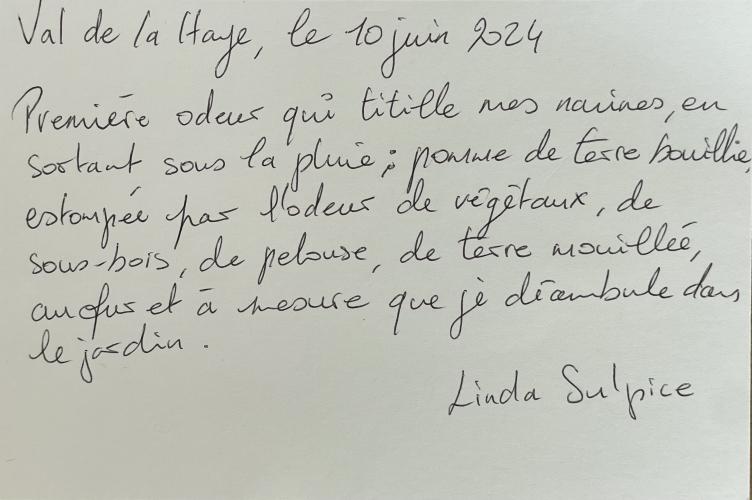 Val de la Haye, le 10 juin 2024
Première odeur qui titille mes narines, en
sortant sous la pluie ; pomme de terre bouillie,
estompée par l'odeur de végétaux, de
sous-bois, de pelouse, de terre mouillée,
au fur et à mesure que je déambule dans
le jardin.
Linda Sulpice